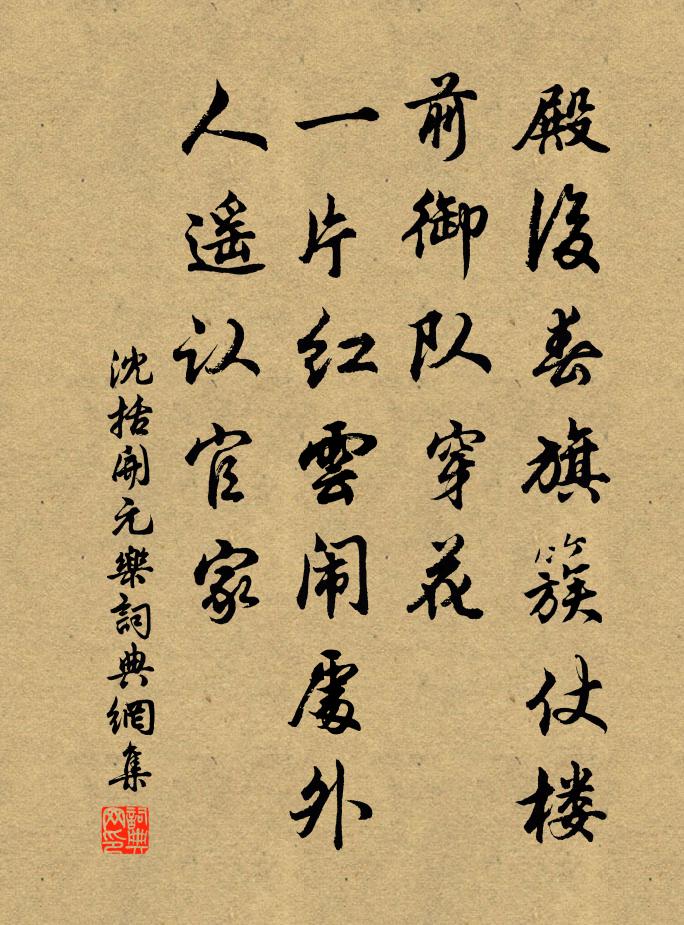 殿後春旗簇仗楼
前御队穿花
一片红雲闹處外
人遥认官家
沈括開元樂詞典網集
詞典网印